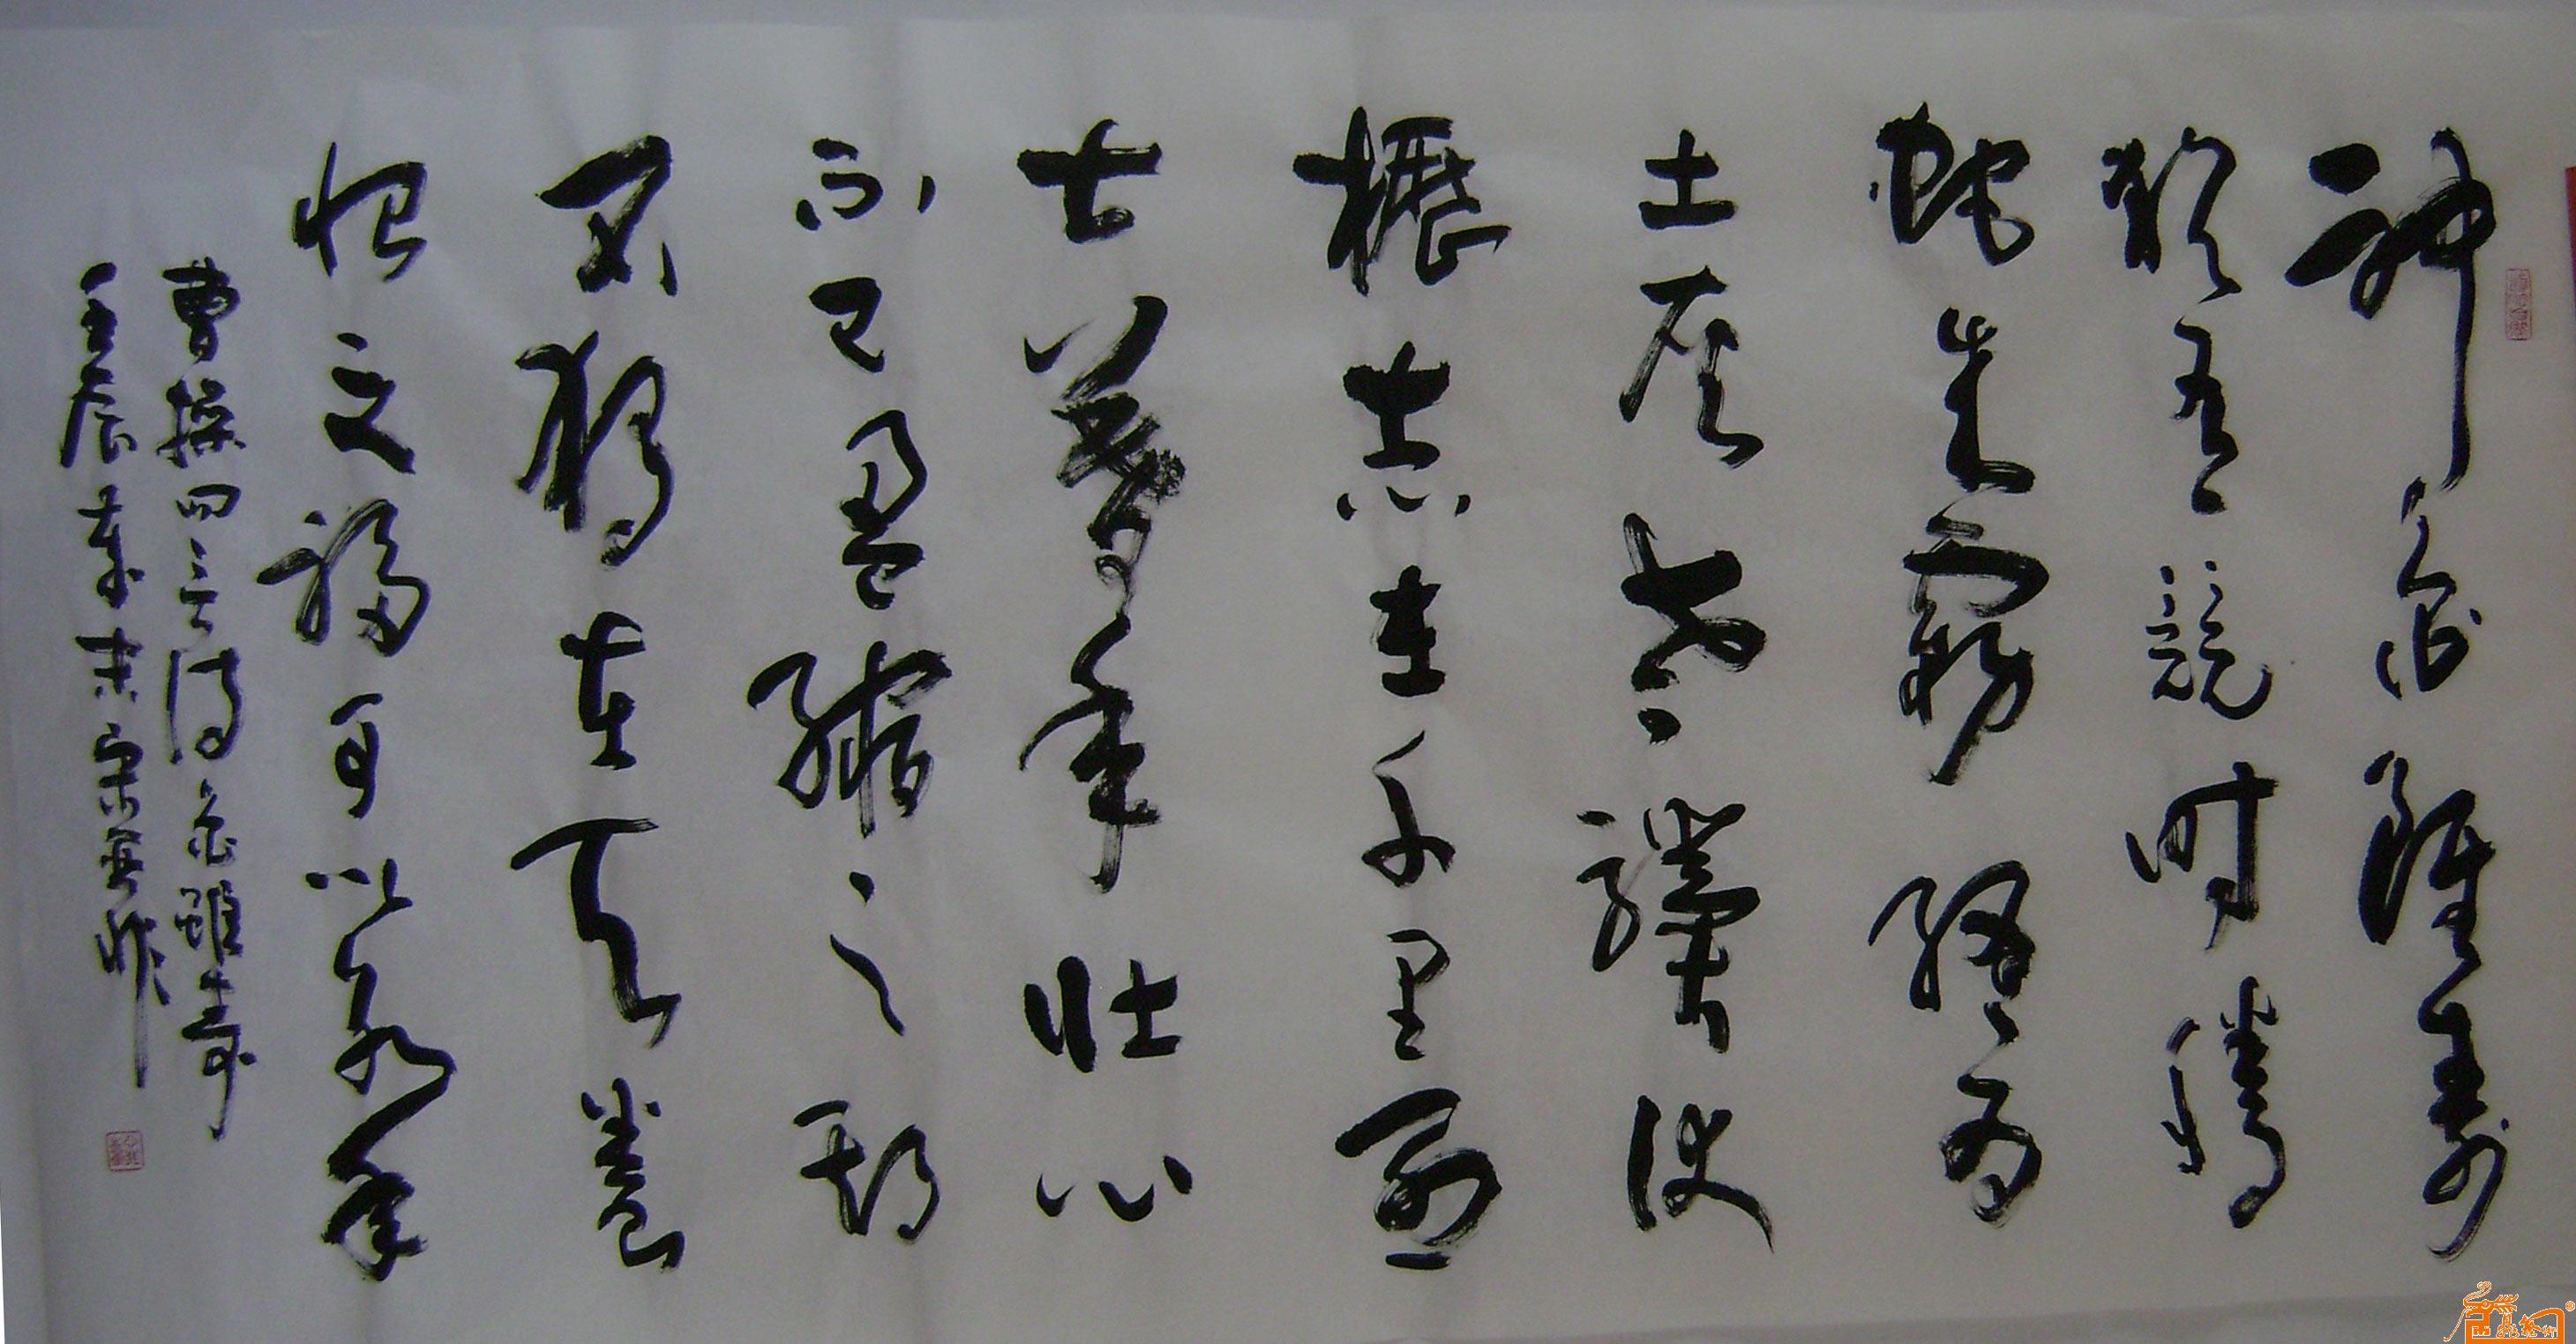 神龜雖壽
猶有競時騰
蛇乘霧終為
土灰老驥伏
櫪志在千里烈
士暮年壯心
不已盈縮之期
不獨在天養
怡之福可以永年
曹操四言詩龜雖壽
壬辰春末宋